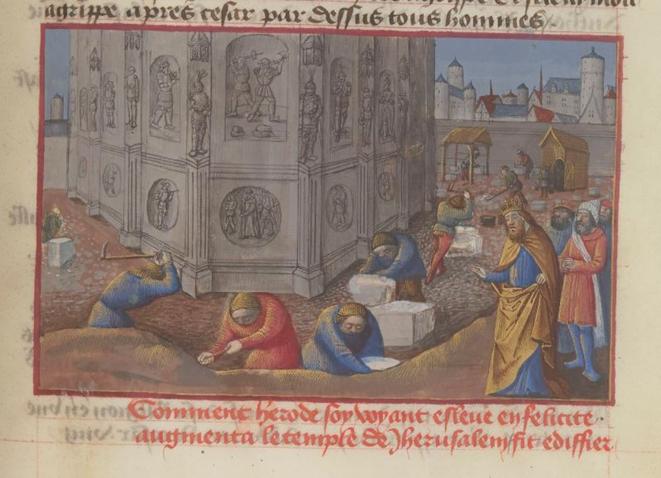 agrippe apres cesar par dessus tous hommes.
Comment herode soy voyant esleue en felicite.
augmenta le temple de Jherusalem fit ediffier